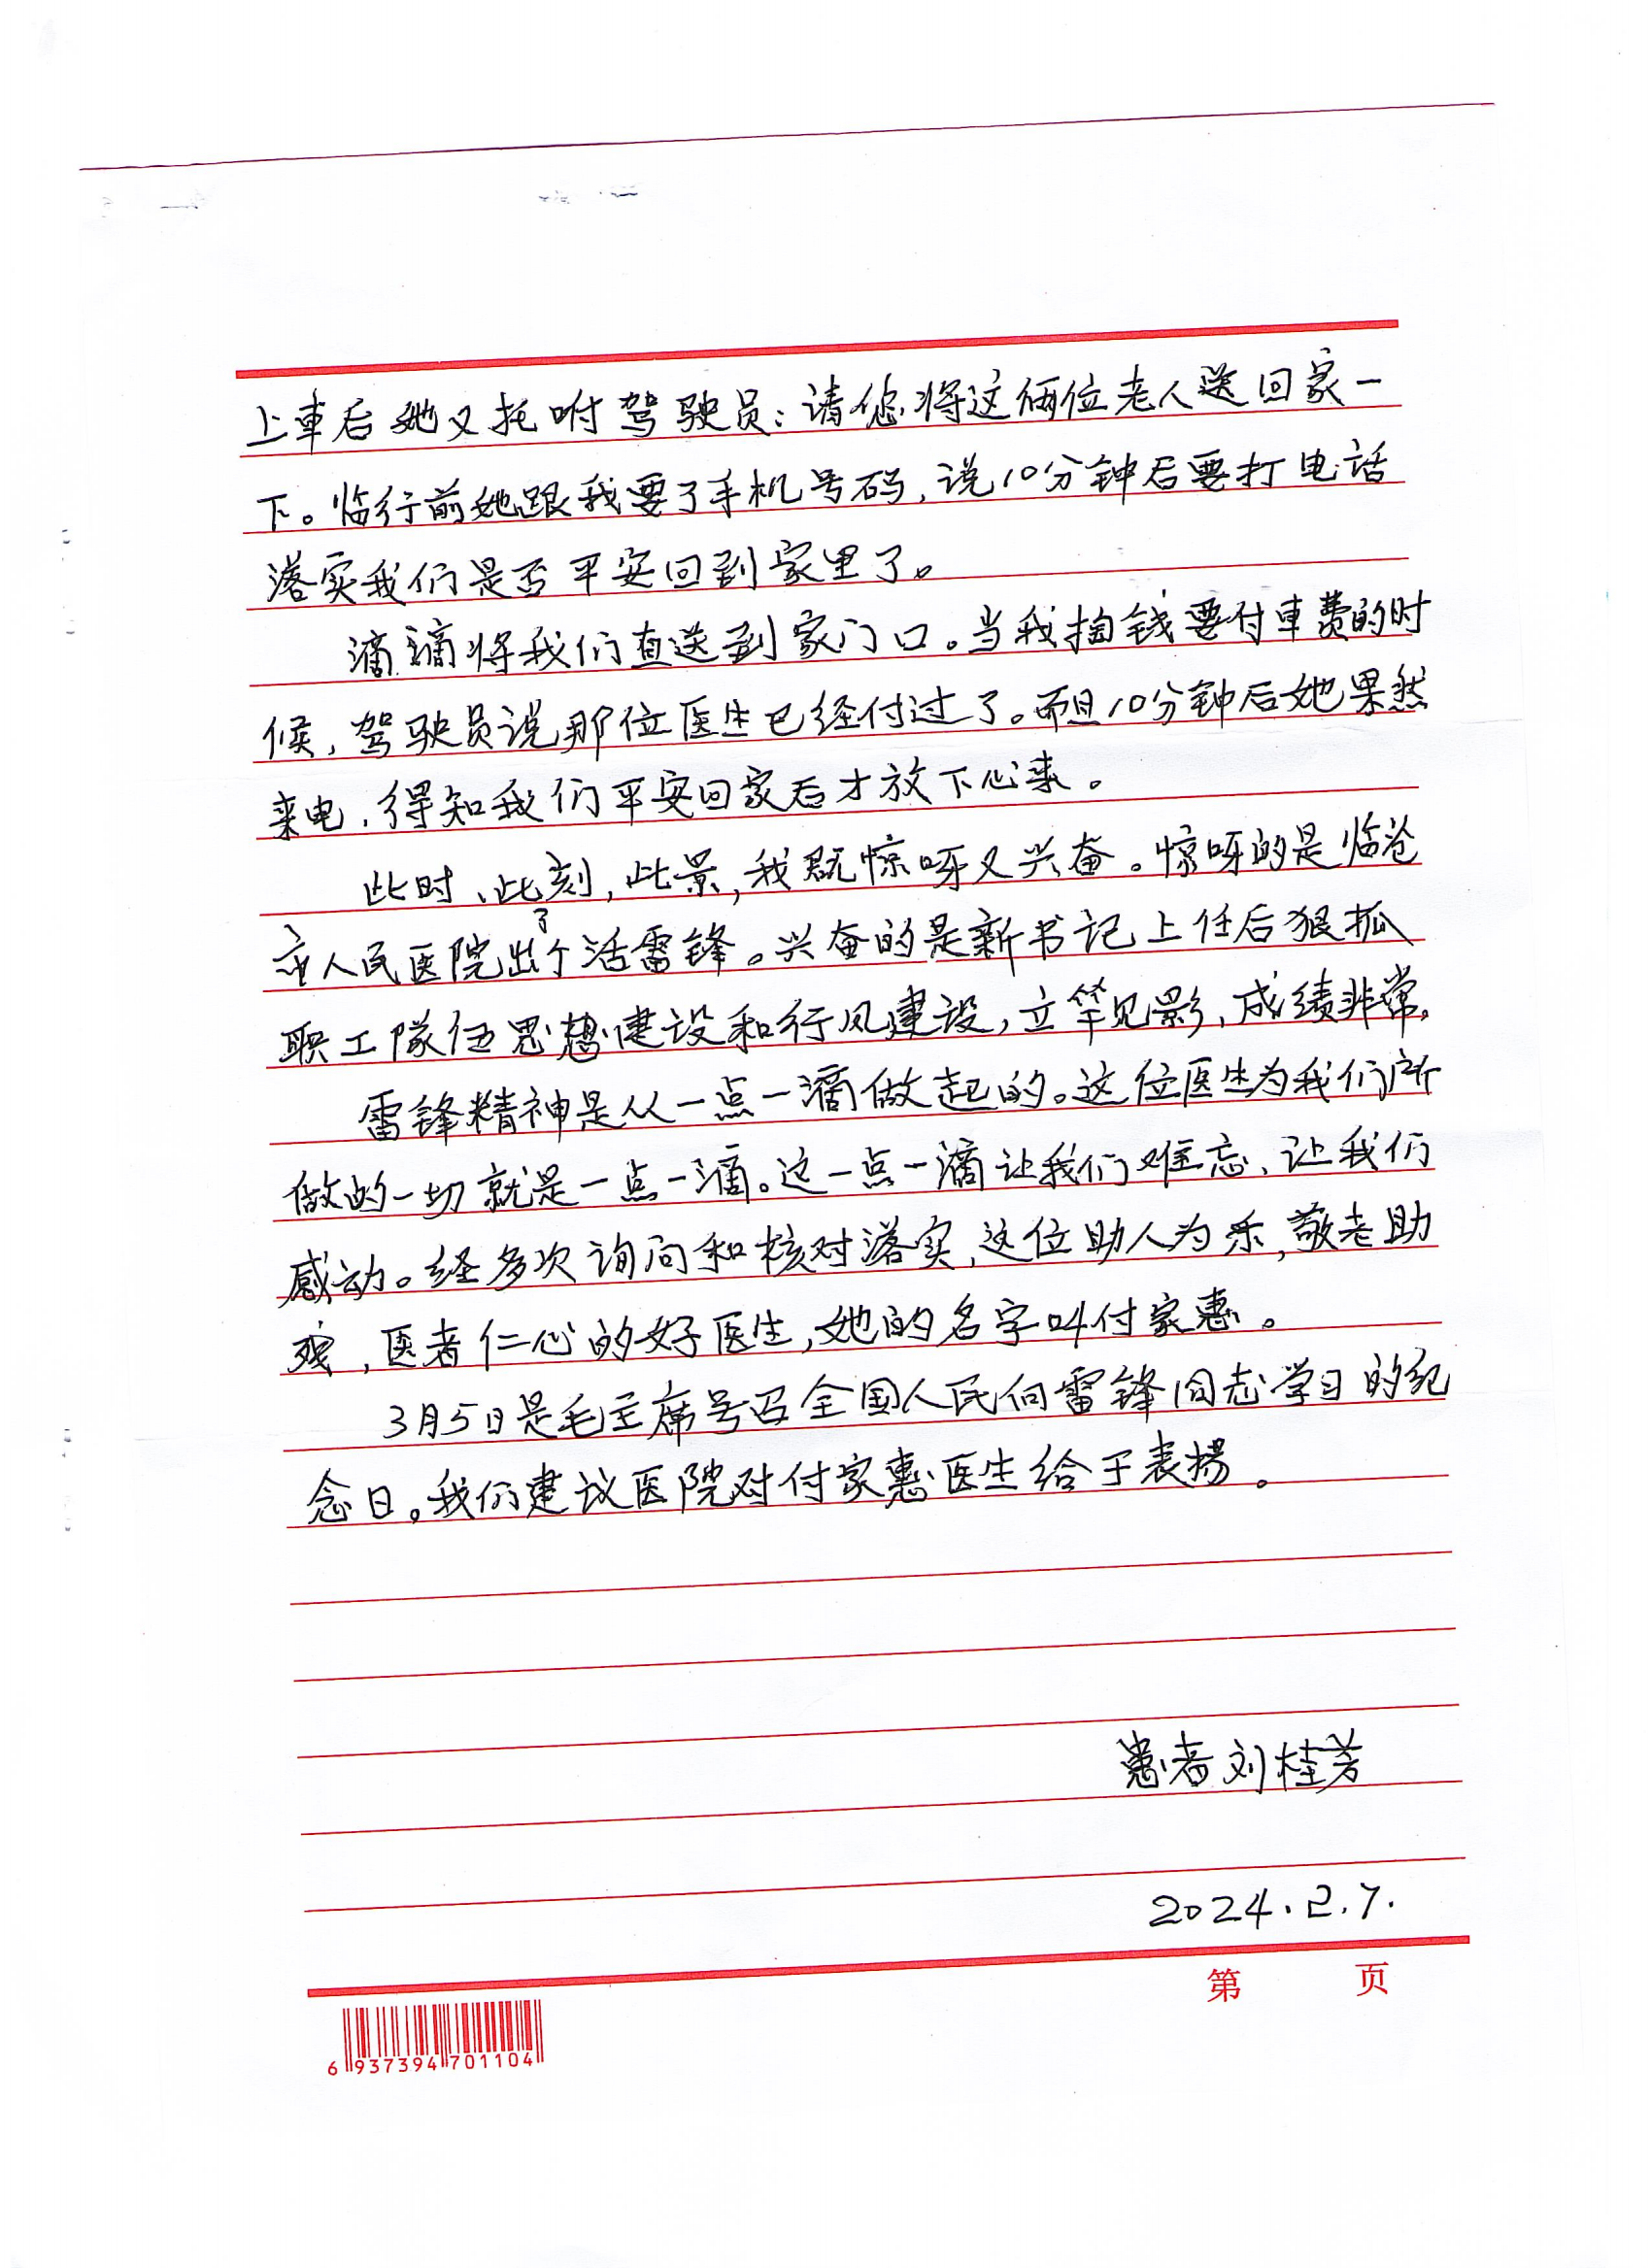 上車后她又托咐驾驶员：请您将这俩位老人送回家一
下。临行前她跟我要了手机号码，说10分钟后要打电话
落实我们是否平安回到家里了。
滴滴将我们直送到家门口。当我掏钱要付車费的时
候，驾驶员说那位医生已经付过了。而且10分钟后她果然
来电，得知我们平安回家后才放下心来。
此时、此刻，此景，我既惊呀又兴奋。惊呀的是临沧
市人民医院出了个活雷锋。兴奋的是新书记上任后狠抓
职工隊伍思想建设和行风建设，立竿见影，成绩非常。
雷锋精神是从一点一滴做起的。这位医生为我们所
做的一切就是一点一滴。这一点一滴让我们难忘、让我们
感动。经多次询问和核对落实，这位助人为乐，敬老助
残，医者仁心的好医生，她的名字叫付家惠。
3月5日是毛主席号召全国人民向雷锋同志学习的纪
念日。我们建议医院对付家惠医生给于表揚。
患者刘桂芳
2024.2.7.
第 页
6 937394 701104